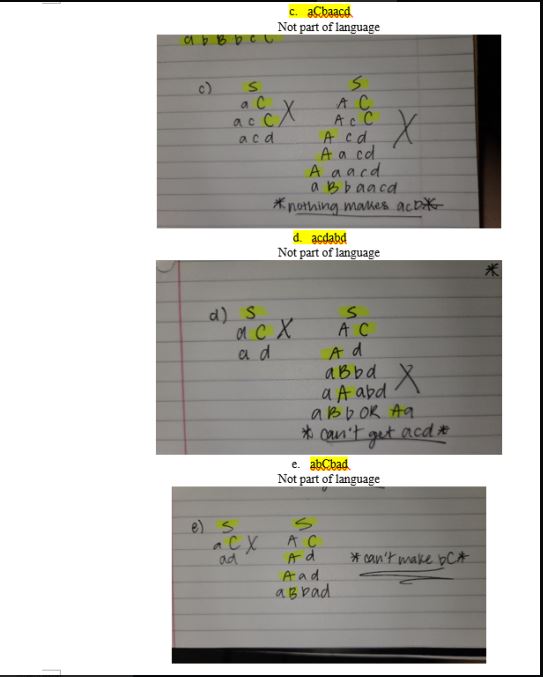 c. aCbaacd
Not part of language
a b B b c C
c) S S
a C X A C
a c C A c C X
a c d A c d
A a c d
A a a c d
a B b a a c d
*nothing makes acb*
d. acdabd
Not part of language
*
d) S S
a C X A C
a d A d
a B b d X
a A a b d
a B b OR A a
* can't get acd *
e. abCbad
Not part of language
e) S S
a C X A C
ad A d *can't make bC*
A a d
a B b a d